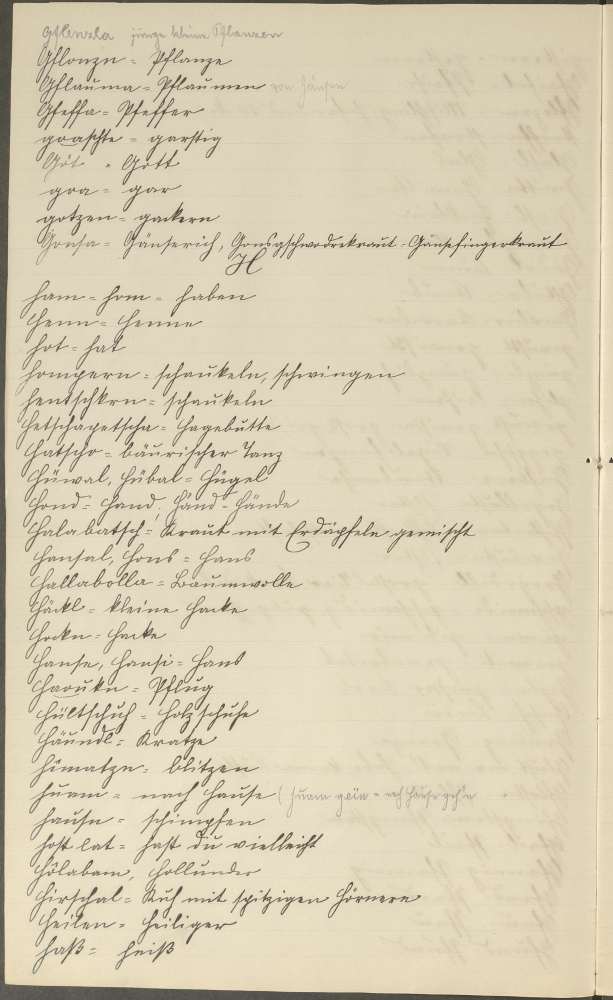 Gflanzla junge kleine Pflanzen
Gflonzn = Pflanze
Gflauma = Pflaumen von Gänsen
Gfeffa = Pfeffer
goaschte = garstig
Gôt = Gott
goa = gar
gotzen = gackern
Gonsa = Gänserich, Gonsgschwodrekraut = Gänsefingerkraut
H
ham = hom = haben
Henn = Henne
hot = hat
hompern = schaukeln, schwingen
hentschkrn = schaukeln
Hetschapetscha = Hagebutte
Hatscho = bäurischer Tanz
Hüwal, Hübal = Hügel
Hond = Hand. Händ = Hände
Halabatsch = Kraut mit Erdäpfeln gemischt
Hansal, Hons = Hans
Hallabolla = Baumwolle
Häckl = kleine Hacke
Hockn = Hacke
Hanse, Hansi = Hans
Haoukn = Pflug
Hültschuh = Holzschuhe
Häundl = Kratze
himatzn = blitzen
huam = nach Hause (huam gein = nach Hause gehn
hausn = schimpfen
host lat = hast du vielleicht
Hôlabam, Hollunder
Hirschal = Kuh mit spitzigen Hörnern
Heilen = Heiliger
haß = heiß